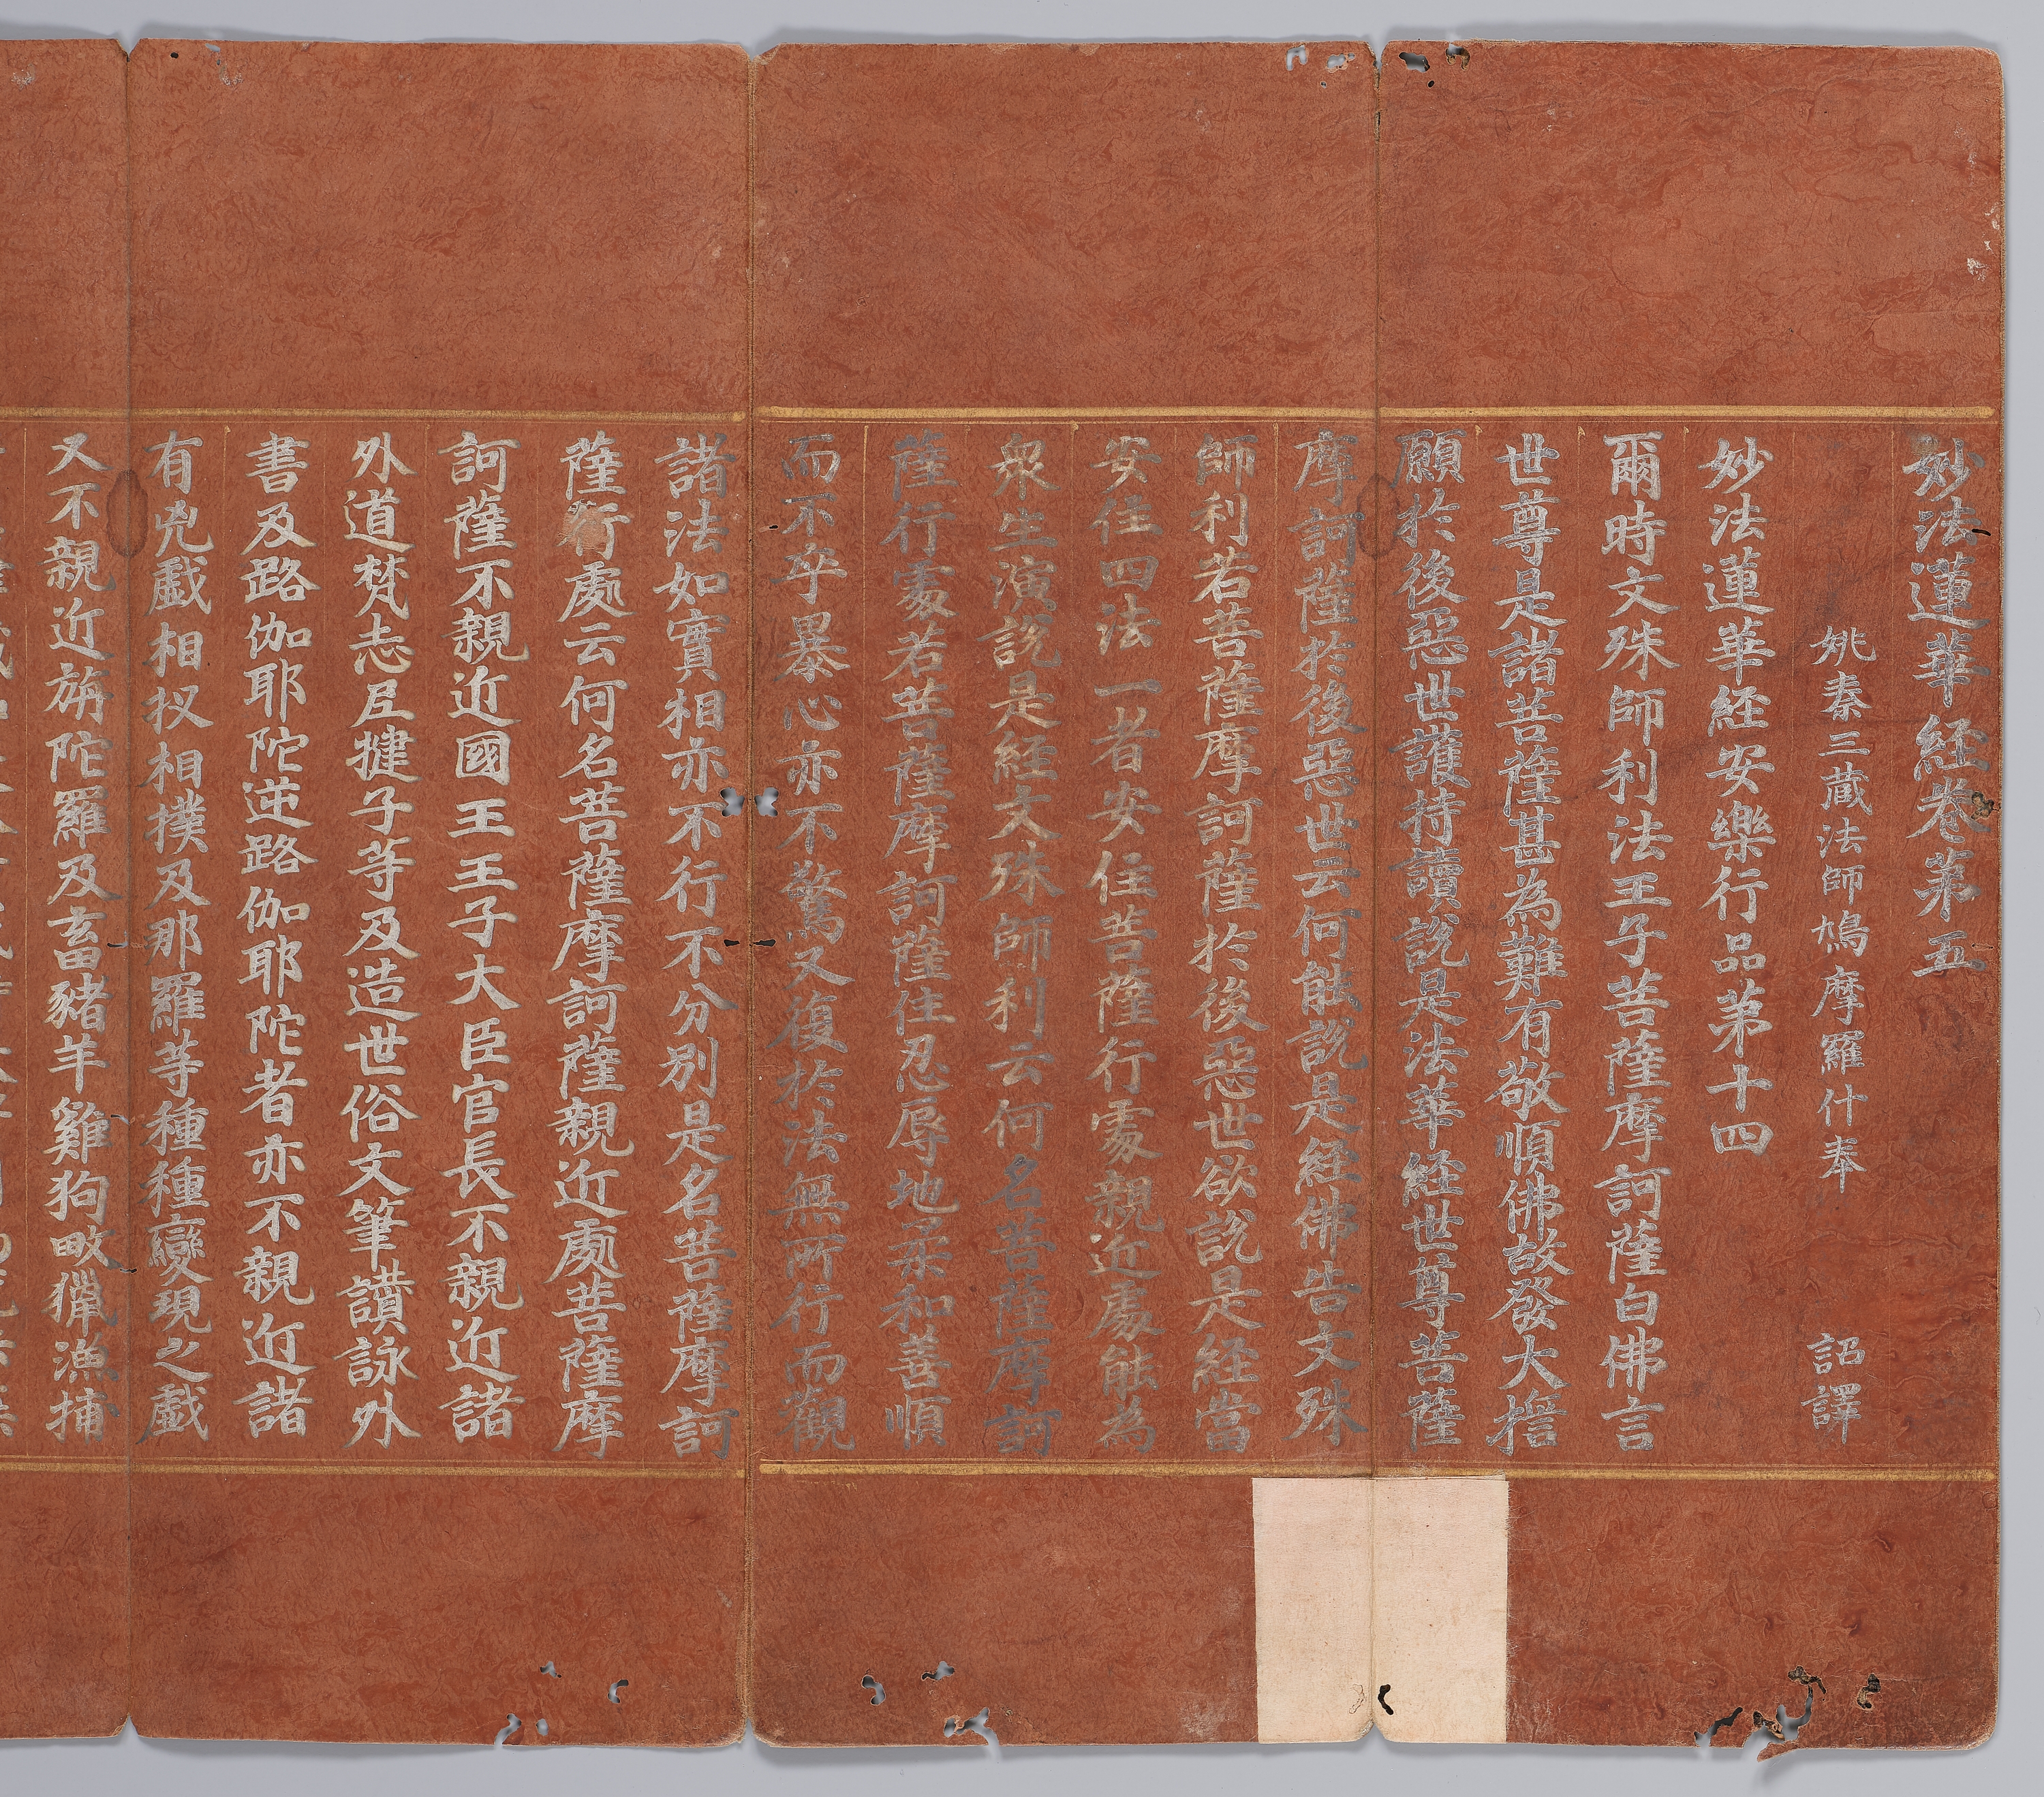 妙法蓮華経卷第五
姚秦三蔵法師鳩摩羅什奉 詔譯
妙法蓮華経安樂行品第十四
爾時文殊師利法王子菩薩摩訶薩白佛言
世尊是諸菩薩甚為難有敬順佛故發大擔
願於後惡世護持讀說是法華経世尊菩薩
摩訶薩於後惡世云何能說是経佛告文殊
師利若菩薩摩訶薩於後惡世欲說是経當
安住四法一者安住菩薩行處親近處能為
衆生演說是経文殊師利云何名菩薩摩訶
薩行處若菩薩摩訶薩住忍辱地柔和善順
而不卒暴心亦不驚又復於法無所行而觀
諸法如實相亦不行不分別是名菩薩摩訶
薩行處云何名菩薩摩訶薩親近處菩薩摩
訶薩不親近國王王子大臣官長不親近諸
外道梵志尼揵子等及造世俗文筆讚詠外
書及路伽耶陀逆路伽耶陀者亦不親近諸
有兇戲相扠相撲及那羅等種種變現之戲
又不親近旃陀羅及畜豬羊雞狗畋獵漁捕